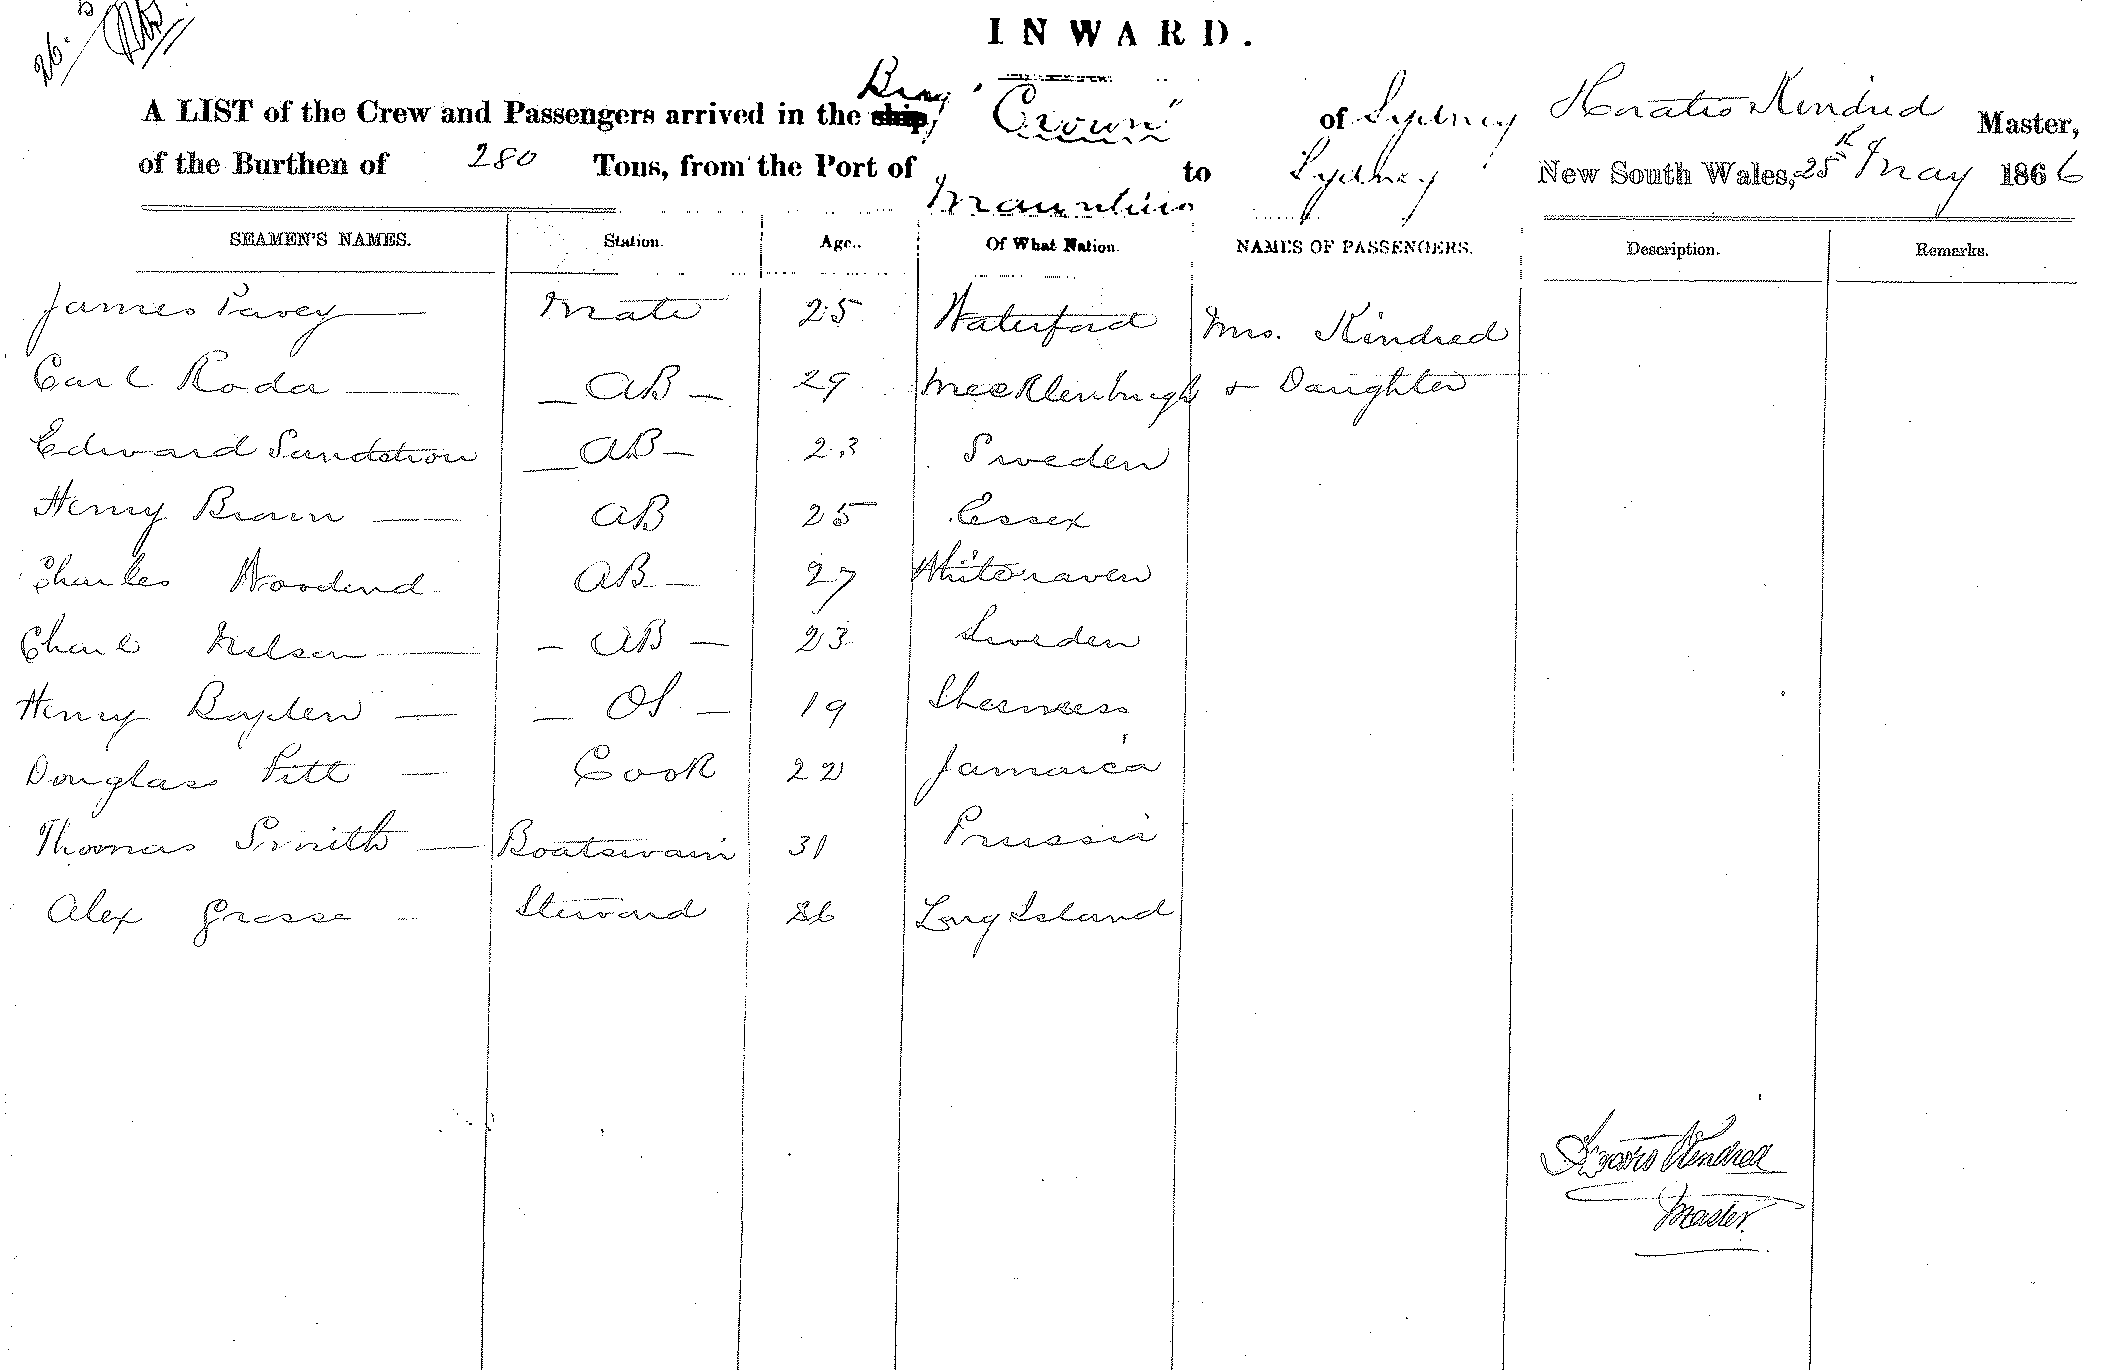 26.5
INWARD.
A LIST of the Crew and Passengers arrived in the ship, Brig "Crown" of Sydney Horatio Kindred Master,
of the Burthen of 280 Tons, from the Port of Mauritius to Sydney New South Wales, 25th May 1866
SEAMEN'S NAMES. Station. Age. Of What Nation. NAMES OF PASSENGERS. Description. Remarks.
James Pavey Mate 25 Waterford Mrs. Kindred
Carl Roda AB 29 Mecklenburgh & Daughter
Edward Sundstrom AB 23 Sweden
Henry Brown AB 25 Essex
Charles Woodend AB 27 Whitehaven
Charl Nelson AB 23 Sweden
Henry Boyden OS 19 Sheerness
Douglass Pitt Cook 22 Jamaica
Thomas Smith Boatswain 31 Prussia
Alex Grosse Steward 26 Long Island
Horatio Kindred
Master.